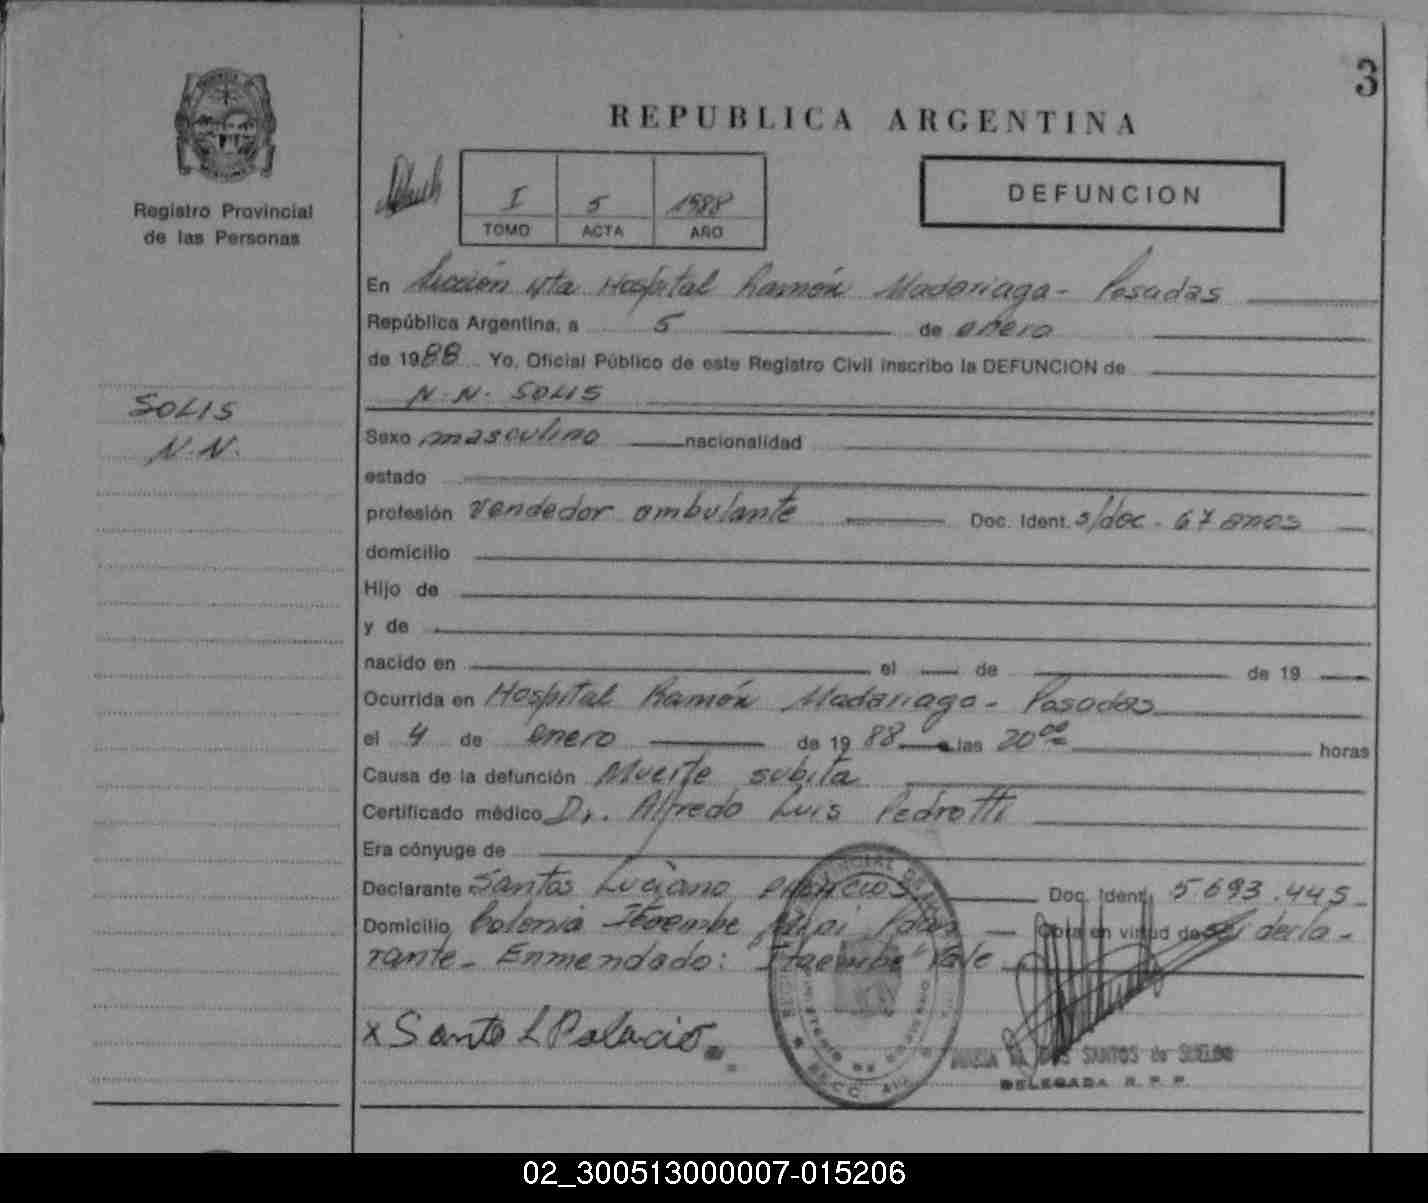 3
REPUBLICA ARGENTINA
Registro Provincial
de las Personas
I 5 1988
TOMO ACTA AÑO
DEFUNCION
En Sección 4ta Hospital Ramón Madariaga - Posadas
República Argentina, a 5 de enero
de 1988 Yo, Oficial Público de este Registro Civil inscribo la DEFUNCION de
N.N. SOLIS
SOLIS
N.N.
Sexo masculino nacionalidad
estado
profesión vendedor ambulante Doc. Ident. s/doc - 67 anos
domicilio
Hijo de
y de
nacido en el de de 19
Ocurrida en Hospital Ramón Madariaga - Posadas
el 4 de enero de 1988 a las 20 00 horas
Causa de la defunción Muerte subita
Certificado médico Dr. Alfredo Luis Pedrotti
Era cónyuge de
Declarante Santos Luciano Doc. Ident. 5.693.445
Domicilio Colonia Itaembe Obra en virtud de decla-
rante - Enmendado: "Itaembe" Vale
x Santo L Palacio
DOS SANTOS de
DELEGADA R. P. P.
02_300513000007-015206